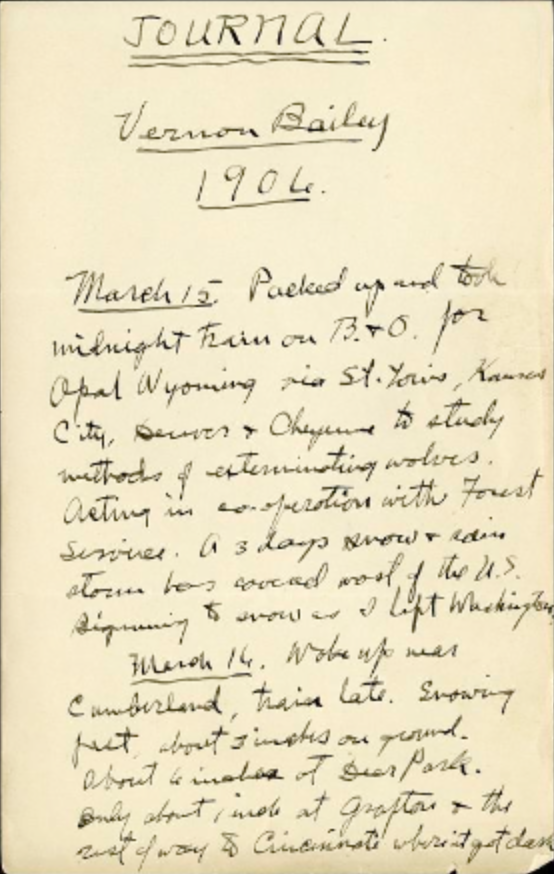 JOURNAL.
Vernon Bailey
1906.
March 15. Packed up and took
midnight train on B. & O. for
Opal Wyoming via St. Louis, Kansas
City, Denver & Cheyenne to study
methods of exterminating wolves.
Acting in co-operation with Forest
Service. A 3 days snow & rain
storm has covered most of the U.S.
Beginning to snow as I left Washington.
March 16. Woke up near
Cumberland, train late. Snowing
fast, about 3 inches on ground.
About 6 inches at Deer Park.
Only about 1 inch at Grafton & the
rest of way to Cincinnati where it got dark